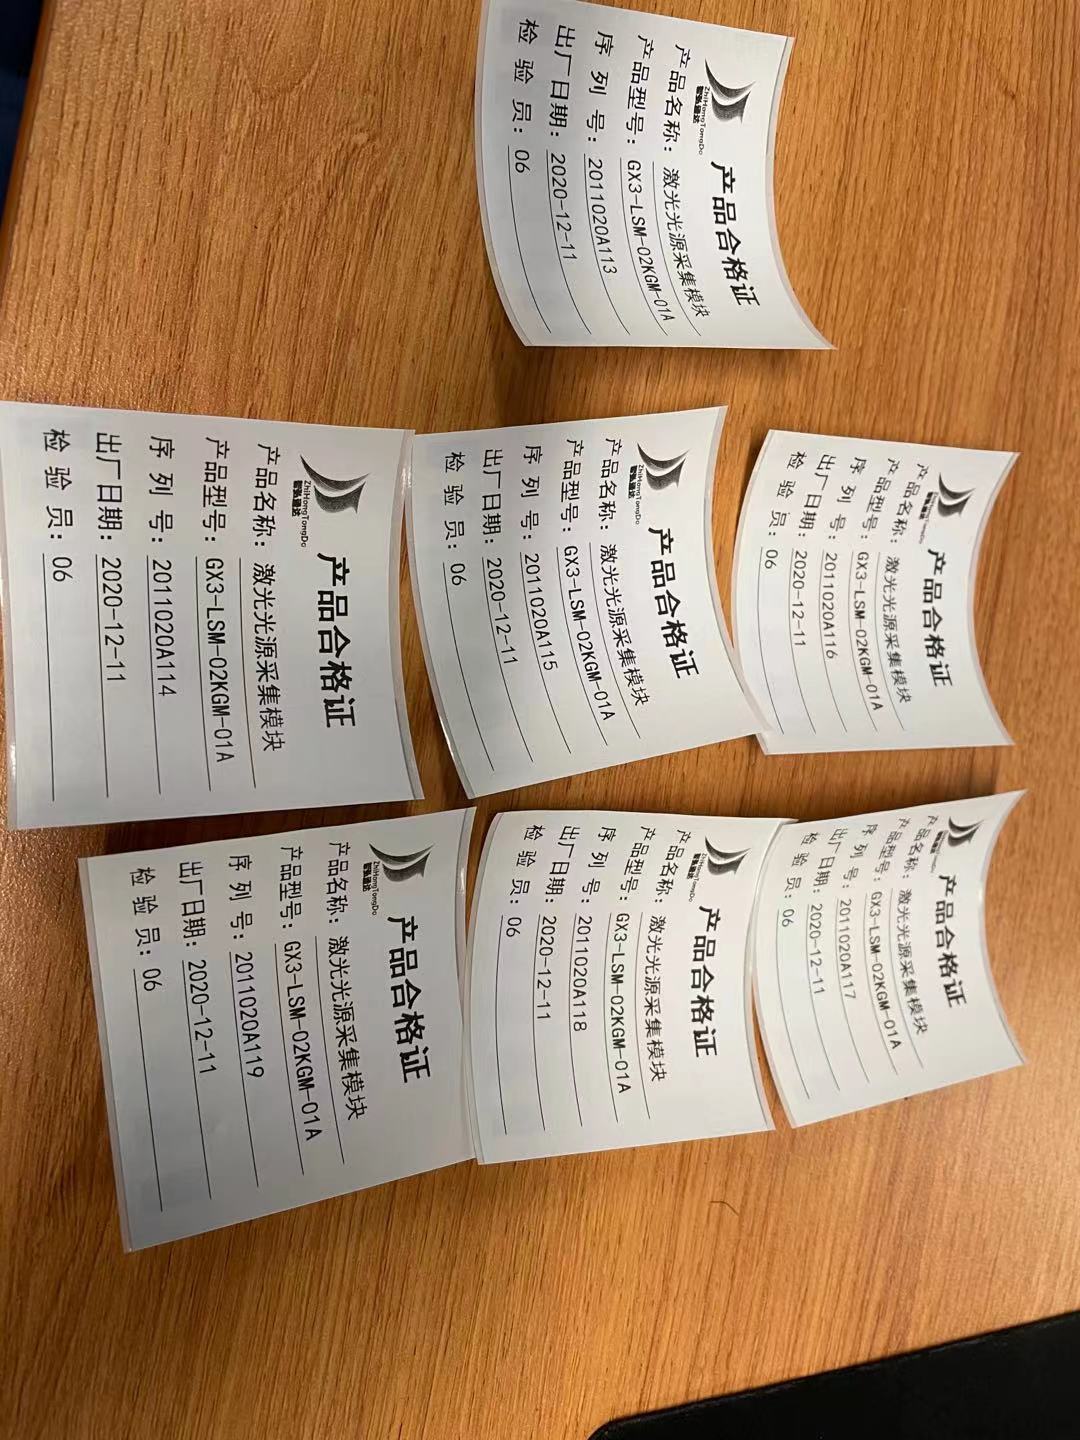 ZhiHongTongDa
智弘通达
产品合格证
产品名称：激光光源采集模块
产品型号：GX3-LSM-02KGM-01A
序列号：2011020A113
出厂日期：2020-12-11
检验员：06
ZhiHongTongDa
智弘通达
产品合格证
产品名称：激光光源采集模块
产品型号：GX3-LSM-02KGM-01A
序列号：2011020A114
出厂日期：2020-12-11
检验员：06
ZhiHongTongDa
智弘通达
产品合格证
产品名称：激光光源采集模块
产品型号：GX3-LSM-02KGM-01A
序列号：2011020A115
出厂日期：2020-12-11
检验员：06
智弘通达
产品合格证
产品名称：激光光源采集模块
产品型号：GX3-LSM-02KGM-01A
序列号：2011020A116
出厂日期：2020-12-11
检验员：06
ZhiHongTongDa
智弘通达
产品合格证
产品名称：激光光源采集模块
产品型号：GX3-LSM-02KGM-01A
序列号：2011020A119
出厂日期：2020-12-11
检验员：06
ZhiHongTongDa
智弘通达
产品合格证
产品名称：激光光源采集模块
产品型号：GX3-LSM-02KGM-01A
序列号：2011020A118
出厂日期：2020-12-11
检验员：06
智弘通达
产品合格证
产品名称：激光光源采集模块
产品型号：GX3-LSM-02KGM-01A
序列号：2011020A117
出厂日期：2020-12-11
检验员：06